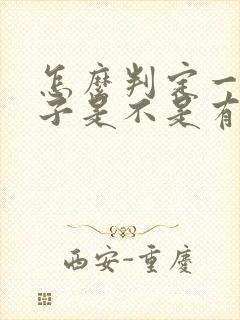 怎麼判定一
子是不是有
西安-重慶